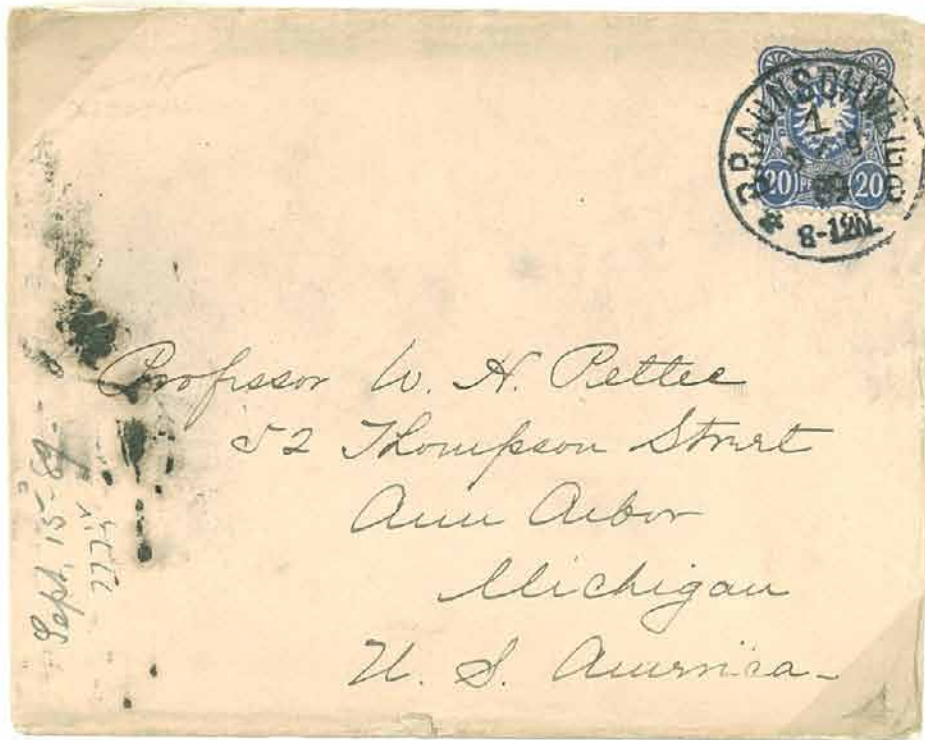 BRAUNSCHWEIG
1
89
8-12N.
20 20
Professor W. H. Pettee
52 Thompson Street
Ann Arbor
Michigan
U. S. America
Sept. 15 - 89.